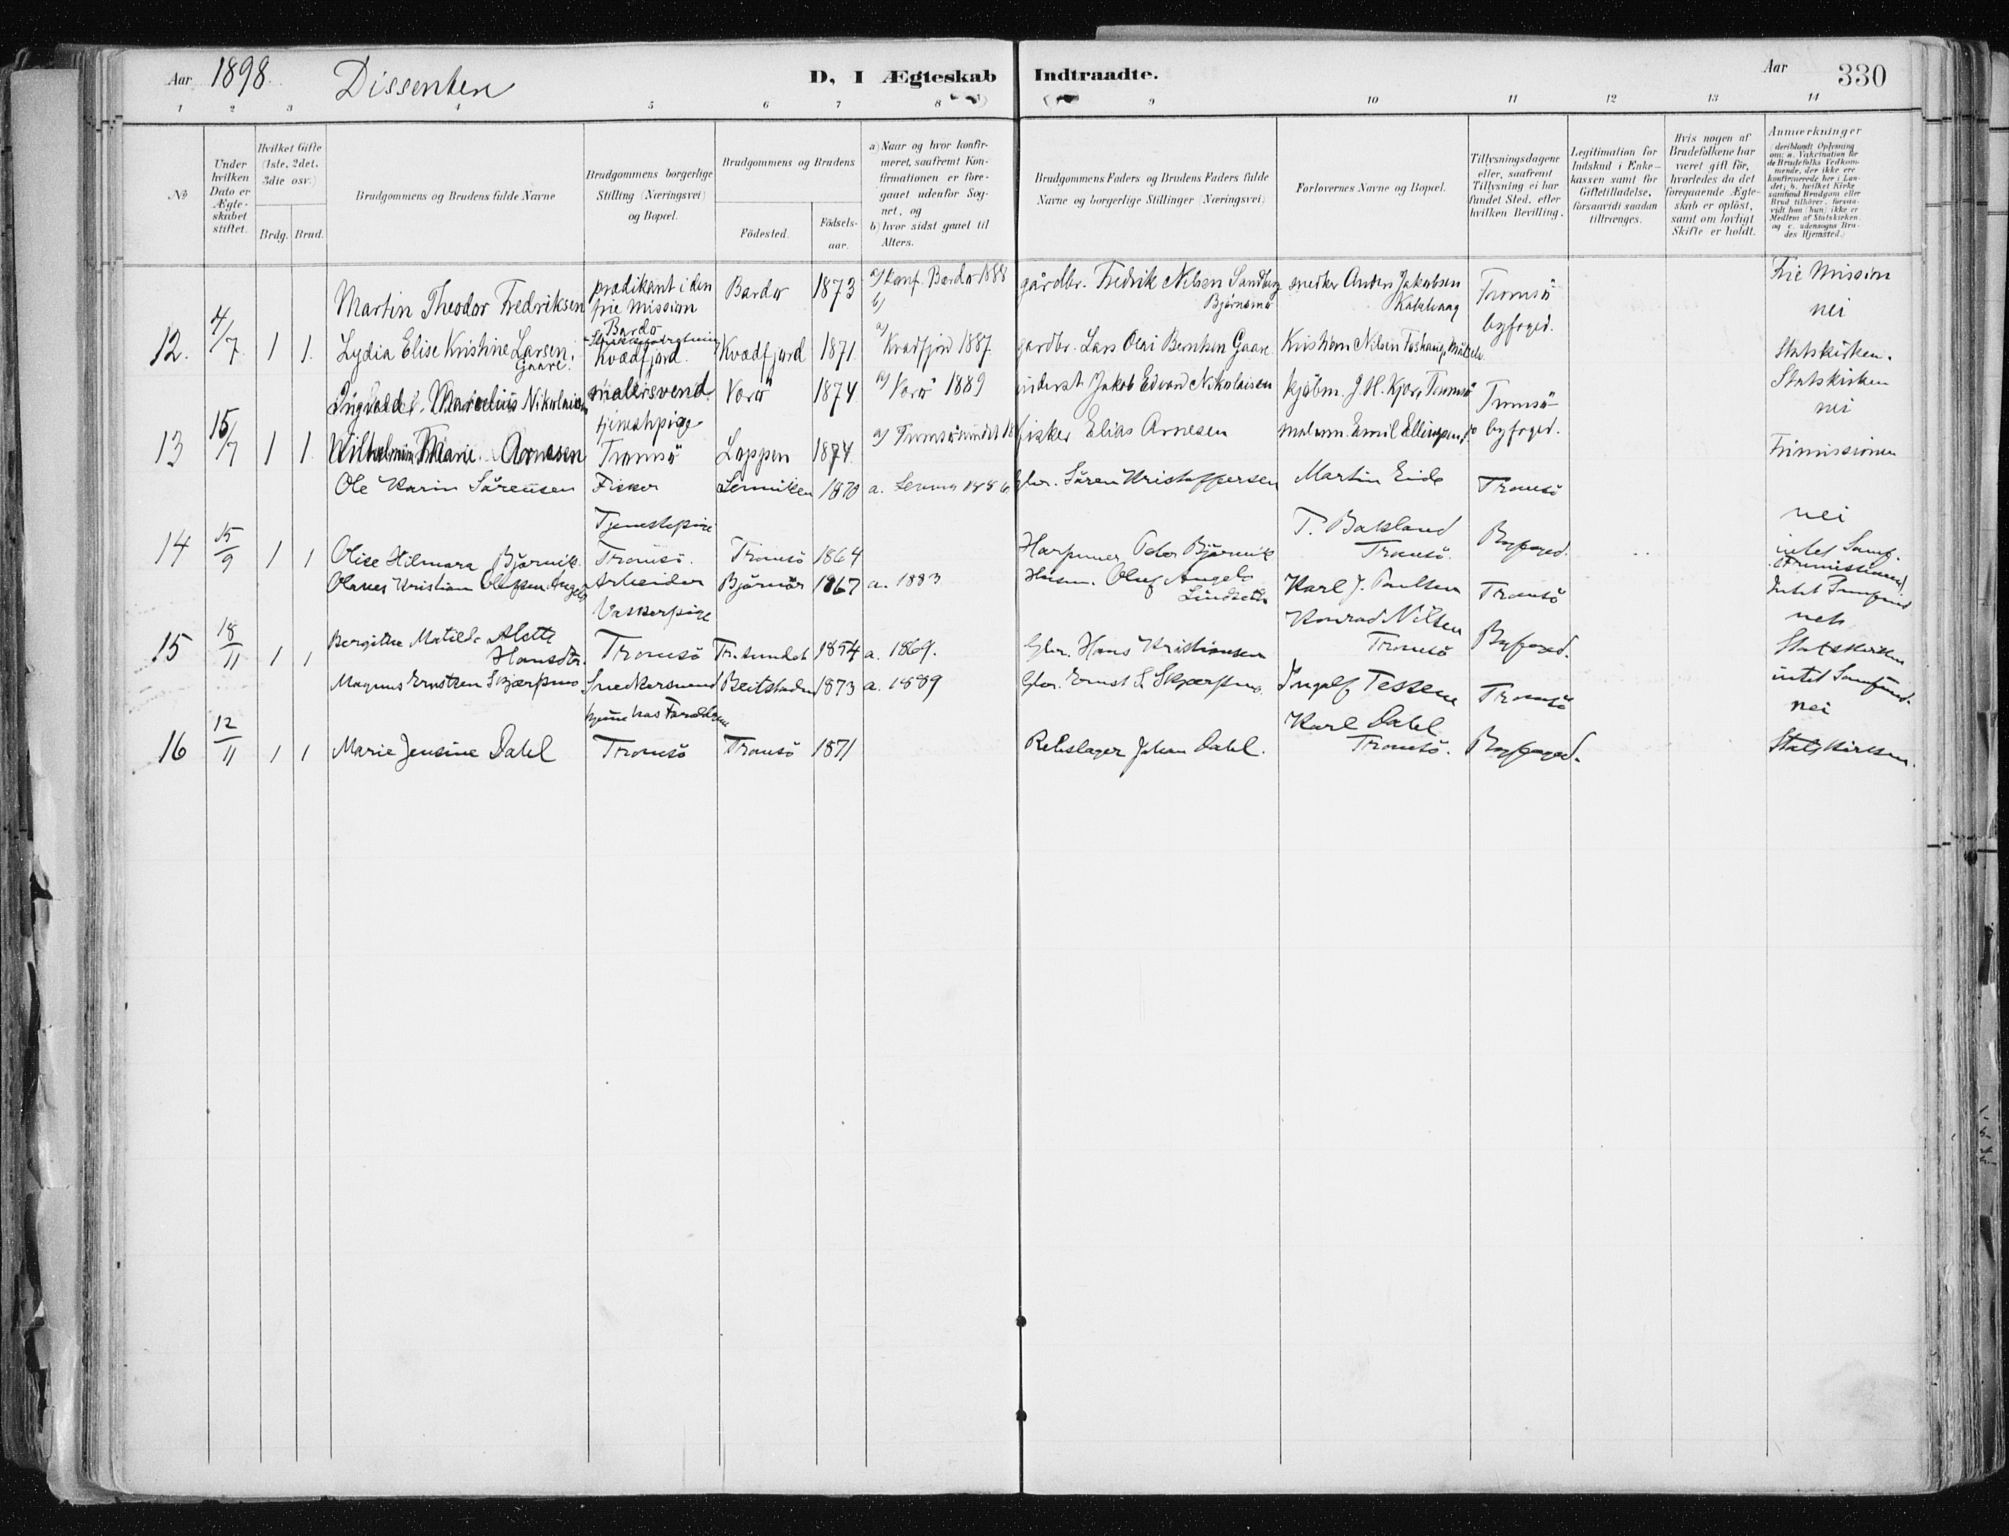 Aar 1898. Dissentere D, I Ægteskab Indtraadte. Aar 330
1 2 3 4 5 6 7 8 9 10 11 12 13 14
No
Under hvilken Dato er Ægteskabet stiftet.
Hvilket Gifte (1ste, 2det, 3die osv.)
Brdg. Brud.
Brudgommens og Brudens fulde Navne
Brudgommens borgerlige Stilling (Næringsvei) og Bopæl.
Brudgommens og Brudens
Födested. Födselsaar.
a) Naar og hvor konfirmeret, saafremt Konfirmationen er foregaaet udenfor Sognet, og
b) hvor sidst gaaet til Alters.
Brudgommens Faders og Brudens Faders fulde Navne og borgerlige Stillinger (Næringsvei)
Forlovernes Navne og Bopæl.
Tillysningsdagene eller, saafremt Tillysning ei har fundet Sted, efter hvilken Bevilling.
Legitimation for Indskud i Enkekassen samt for Giftetilladelse, forsaavidt saadan tiltrænges.
Hvis nogen af Brudefolkene har været gift för, hvorledes da det foregaaende Ægteskab er oplöst, samt om lovligt Skifte er holdt.
Anmærkninger (deriblandt Oplysning om: a. Vakcination for de Brudefolks Vedkommende, der ikke ere konfirmerede her i Landet; b. hvilket Kirkesamfund Brudgom eller Brud tilhører, forsaavidt han (hun) ikke er Medlem af Statskirken, og c. udensogns Brudes Hjemsted.)
Martin Theodor Fredriksen prædikant i den frie mission Bardo Bardo 1873 a) Konf. Bardo 1888 b) gårdbr. Fredrik Nilsen Sandberg snedker Anders Jakobsen Tromsö byfoged. Frie Mission nei
12. 4/7 1 1. Lydia Elise Kristine Larsen, Gaare. Kvædfjord. Kvædfjord 1871 a) Kvædfjord 1887 gardbr. Lars Olai Berntsen Gaare Kristian Nilsen Statskirken.
Marcelius Nikolaisen malersvend Værö 1874 a) Værö 1889 inderst Jakob Edvard Nikolaisen kjöbm. J. H. Kjær, Tromsö Tromsö byfoged. Statskirken nei
13 15/7 1 1. Marie Arnesen tjenestepige Tromsö Loppen 1874 a) Tromsösundet fisker Elias Arnesen Frimissionen
Ole Karin Sörensen Fisker Lenviken 1870 a. Lenvig 1886 Gbr. Sören Kristoffersen Martin Eide Tromsö nei
14 15/9 1 1 Olise Hilmara Björnvik. Tjenestepige Tromsö. Tromsö 1864 Harpuner Peder Björnvik T. Baksland Tromsö. Byfoged. intet Samf.
Olaus Kristian Olufsen Angels Arbeider Björnör 1867 a. 1883 Husm. Oluf Angels Karl J. Paulsen Tromsö (Frimissionen) Intet Samfund nei
15 18/11 1 1 Bergitte Matilde Aletta Hansdtr. Vaskerpige Tromsö Tr.sundet 1854 a. 1869. Gbr. Hans Kristiansen Konrad Nilsen Tromsö Byfoged. Statskirken
Magnus Ernstsen Skjærpmo Snedkersvend Beitstaden 1873 a. 1889 Gbr. Ernst S. Skjærpmo. Ingolf Tessem Tromsö intet Samfund. nei
16 12/11 1 1 Marie Jensine Dahl hjemme hos Forældrene Tromsö Tromsö 1871 Rebslager Johan Dahl. Karl Dahl Tromsö. Byfoged. Statskirken.